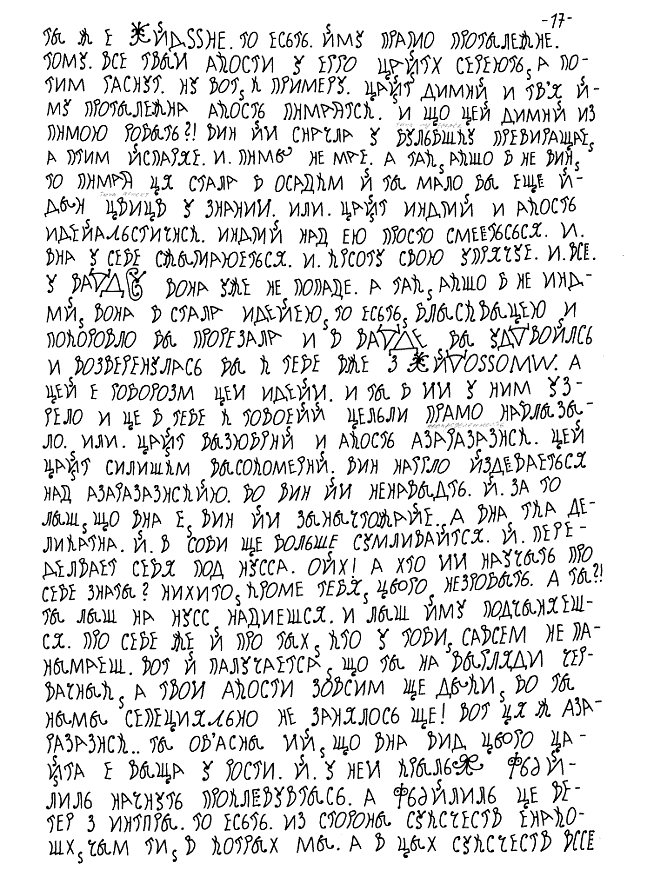 -17-
ТЫ Ж Е ЙДSSНЕ. ТО ЕСЬТЬ. ЙМУ ПРАМО ПРОТЫЛЕЖНЕ.
ТОМУ. ВСЕ ТВЫИ АКОСТИ У ЕГГО ЦАЙТХ СЕРЕЮТЬ, А ПО-
ТИМ ГАСНУТ. НУ ВОТ, К ПРИМЕРУ. ЦАЙТ ДИМНИЙ И ТВ'Я Й-
МУ ПРОТЫЛЕЖНА АКОСТЬ ПНМРАТСК. И ЩО ЦЕЙ ДИМНИЙ ИЗ
ПНМОЮ РОВЫТЬ?! ВИН ЙИ СНРЧЛА У БУЛЬВШКУ ПРЕВИРАЩАЕ,
А ПТИМ ЙСПАРЖЕ. И. НЕ МРЕ. А ТАК, АКШО В НЕ ВИН,
ТО ЦЯ СТАЛА В ОСАДКМ Й ТЫ МАЛО ВЫ ЕЩЕ Й-
ЦВИЦВ У ЗНАНИИ. ИЛИ. ЦАЙТ ИНДМИЙ И АКОСТЬ
ИДЕЙАЛЬСТИЧНСК. ИНДМИЙ НАД ЕЮ ПРОСТО СМЕЕТЬСЬСЯ. И.
ВНА У СЕБЕ СЖЫМАЮЕТЬСЯ. И. КРСОТУ СВОЮ УПРЯЧУЕ. И. ВСЕ.
У ВОНА УЖЕ НЕ ПОПАДЕ. А ТАК, АКШО В НЕ ИНД-
МЙ, ВОНА В СТАЛА ИДЕЙЕЮ, ТО ЕСЬТЬ, ВЛЫСКВЫЦЕЮ И
ПОКОРОВЛО ВЫ ПРОРЕЗАЛА И В ВЫ УДVВОИЛСЬ
И ВОЗВЕРЕНУЛАСЬ ВЫ К ТЕБЕ ВЖЕ З ЙVOSSOMW. А
ЦЕЙ Е РОВОРОЗМ ЦЕИ ИДЕЙИ. И ТЫ В ИИ У НИМ УЗ-
РЕЛО И ЦЕ В ТЕБЕ К ТОВОЕЙЙ ЦЕЛЬЛИ ПРАМО НАВЛЫЗЫ-
ЛО. ИЛИ. ЦАЙТ ВЫЗЮВРНЙ И АКОСТЬ АЗАРАЗАЗНСК. ЦЕЙ
ЦАЙТ СИЛИШКМ ВЫСОКОМЕРНЙ. ВИН НАГГЛО ЙЗДЕВАЕТЬСЯ
НАД АЗАРАЗАЗНСКЙЮ. ВО ВИН ЙИ НЕНАВЫДТЬ. Й. ЗА ТО
ЛЫШ, ЩО ВНА Е, ВИН ЙИ ЗЫНЫЧТОЖАЙЕ. А ВНА ТКА ДЕ-
ЛИКАТНА. Й. В СОВИ ЩЕ ВОЛЬШЕ СУМЛИВАЙТСЯ. Й. ПЕРЕ-
ДЕЛВАЕТ СЕВЯ ПОД НУССА. ОЙХ! А ХТО ИИ НАУЧЫТЬ ПРО
СЕБЕ ЗНАТЫ? НИХИТО, КРОМЕ ТЕВЯ, ЦЬОГО, НЕЗРОВЫТЬ. А ТЫ?!
ТЫ ЛЫШ НА НУСС, НАДИЕШСЯ. И ЛЫШ ЙМУ ПОДЧЫНЯЕШ-
СЯ. ПРО СЕБЕ ЖЕ Й ПРО ТЫХ, КТО У ТОВИ, САВСЕМ НЕ ПА-
НЫМАЕШ. ВОТ Й ПАЛУЧАЕТСА, ЩО ТЫ НА ВЫГЛЯДИ ЧЕР-
ВАЧНЫК, А ТВОИ АКОСТИ ЗОВСИМ ЩЕ ДЫКИ, ВО ТЫ
НЫМЫ СЕПЕЦИЯЛЬНО НЕ ЗАНЯЛОСЬ ЩЕ! ВОТ ЦЯ Ж АЗА-
РАЗАЗНСК.. ТЫ ОБ'АСНЫ ИЙ, ЩО ВНА ВИД ЦЬОГО ЦА-
ЙТА Е ВЫЩА У РОСТИ. Й. У НЕИ ФЬ∂Й-
ЛИЛЬ НАЧНУТЬ ПРОКЛЕВУВТЫСЬ. А ФЬ∂ЙЛИЛЬ ЦЕ ВЕ-
ТЕР З ИНТПРЫ. ТО ЕСЬТЬ. ИЗ СТОРОНЫ СУКСЧЕСТВ ЕНАКО-
ШХ, ЧЫМ ТИ, В КОТРЫХ МЫ. А В ЦЫХ СУКСЧЕСТВ ВССЕ